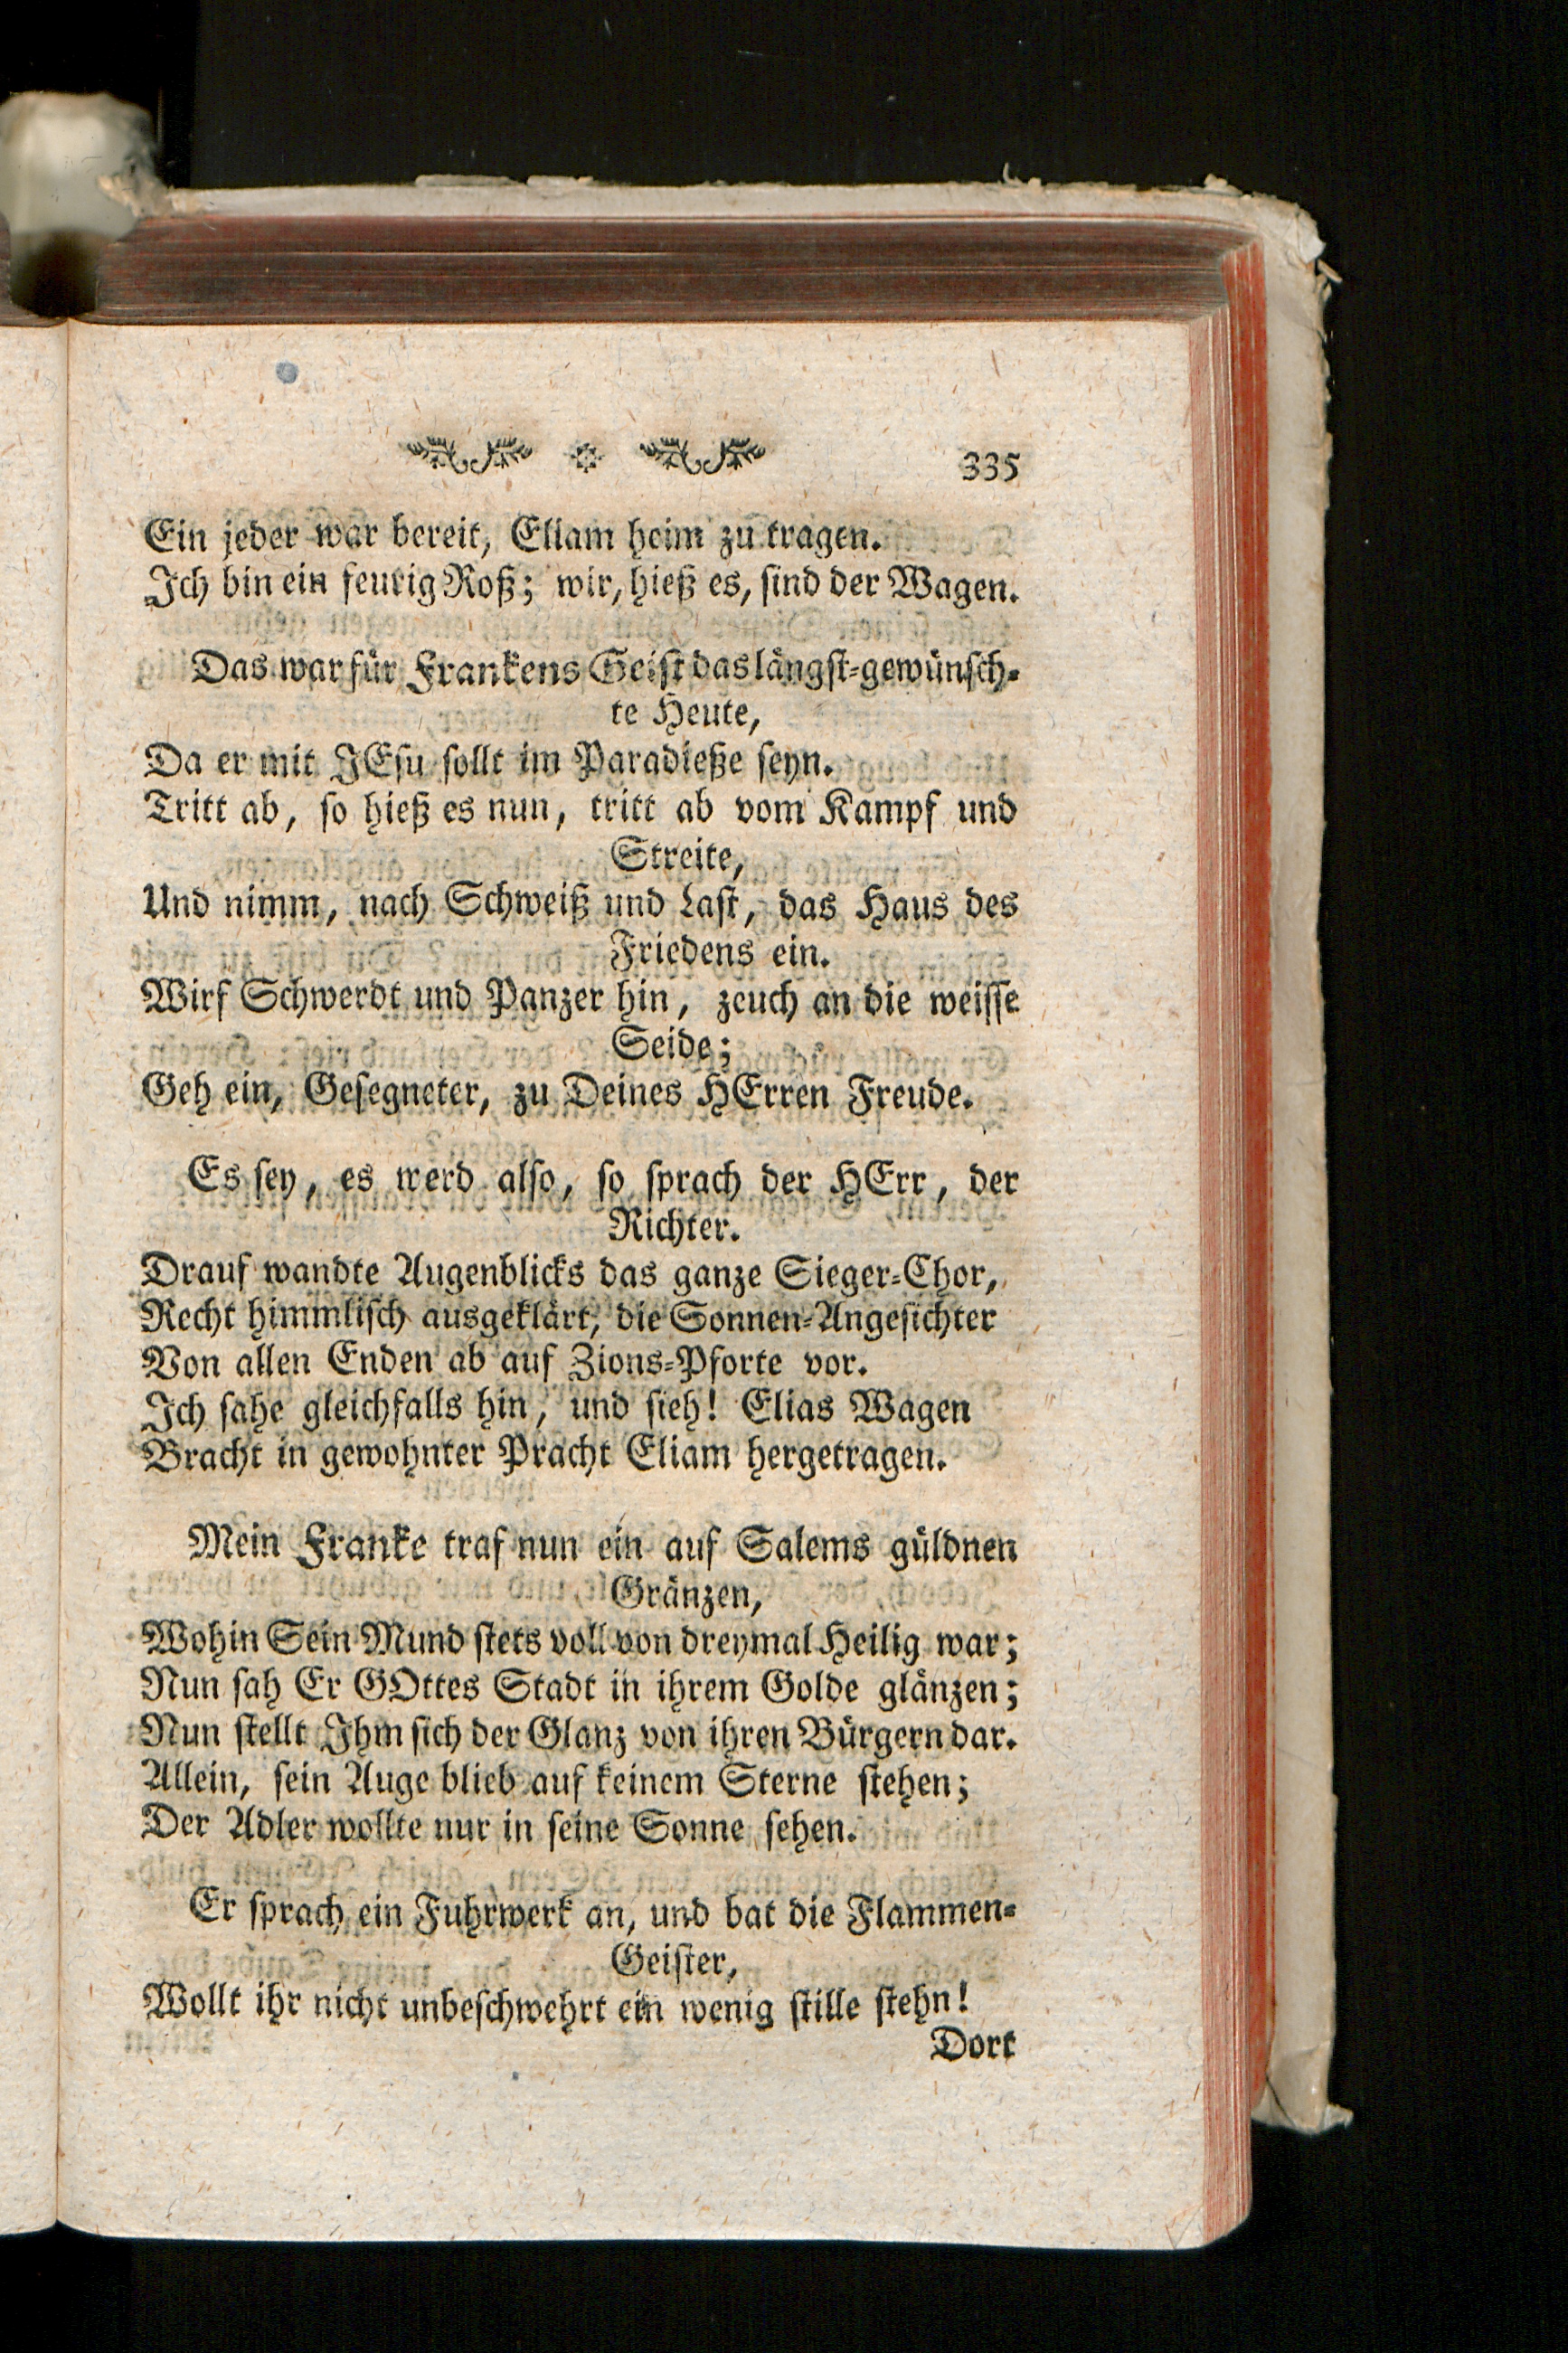 335
Ein jeder war bereit, Eliam heim zu tragen.
Ich bin ein feurig Roß; wir, hieß es, sind der Wagen.
Das war für Frankens Geist das längst-gewünsch-
te Heute,
Da er mit JEsu sollt im Paradieße seyn.
Tritt ab, so hieß es nun, tritt ab vom Kampf und
Streite,
Und nimm, nach Schweiß und Last, das Haus des
Friedens ein.
Wirf Schwerdt und Panzer hin, zeuch an die weisse
Seide;
Geh ein, Gesegneter, zu Deines HErren Freude.
Es sey, es werd also, so sprach der HErr, der
Richter.
Drauf wandte Augenblicks das ganze Sieger-Chor,
Recht himmlisch ausgeklärt, die Sonnen-Angesichter
Von allen Enden ab auf Zions-Pforte vor.
Ich sahe gleichfalls hin, und sieh! Elias Wagen
Bracht in gewohnter Pracht Eliam hergetragen.
Mein Franke traf nun ein auf Salems güldnen
Gränzen,
Wohin Sein Mund stets voll von dreymal Heilig war;
Nun sah Er GOttes Stadt in ihrem Golde glänzen;
Nun stellt Ihm sich der Glanz von ihren Bürgern dar.
Allein, sein Auge blieb auf keinem Sterne stehen;
Der Adler wollte nur in seine Sonne sehen.
Er sprach ein Fuhrwerk an, und bat die Flammen-
Geister,
Wollt ihr nicht unbeschwehrt ein wenig stille stehn!
Dort